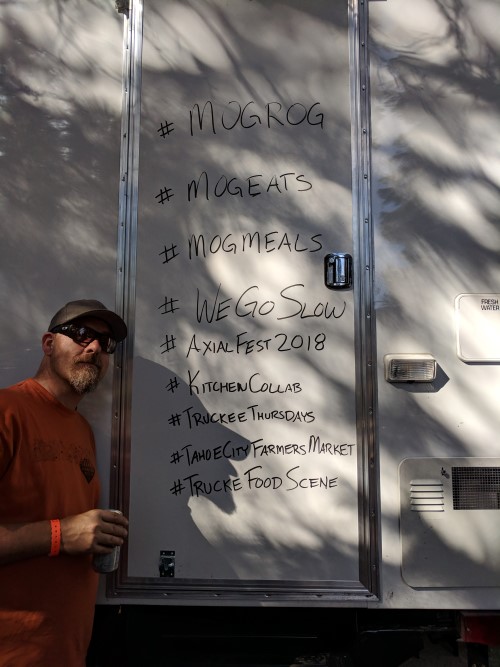 # MOGROG
# MOGEATS
# MOGMEALS
# WEGOSLOW
# AXIALFEST2018
# KITCHENCOLLAB
#TRUCKEETHURSDAYS
#TAHOECITYFARMERSMARKET
#TRUCKEFOODSCENE
FRESH
WATER